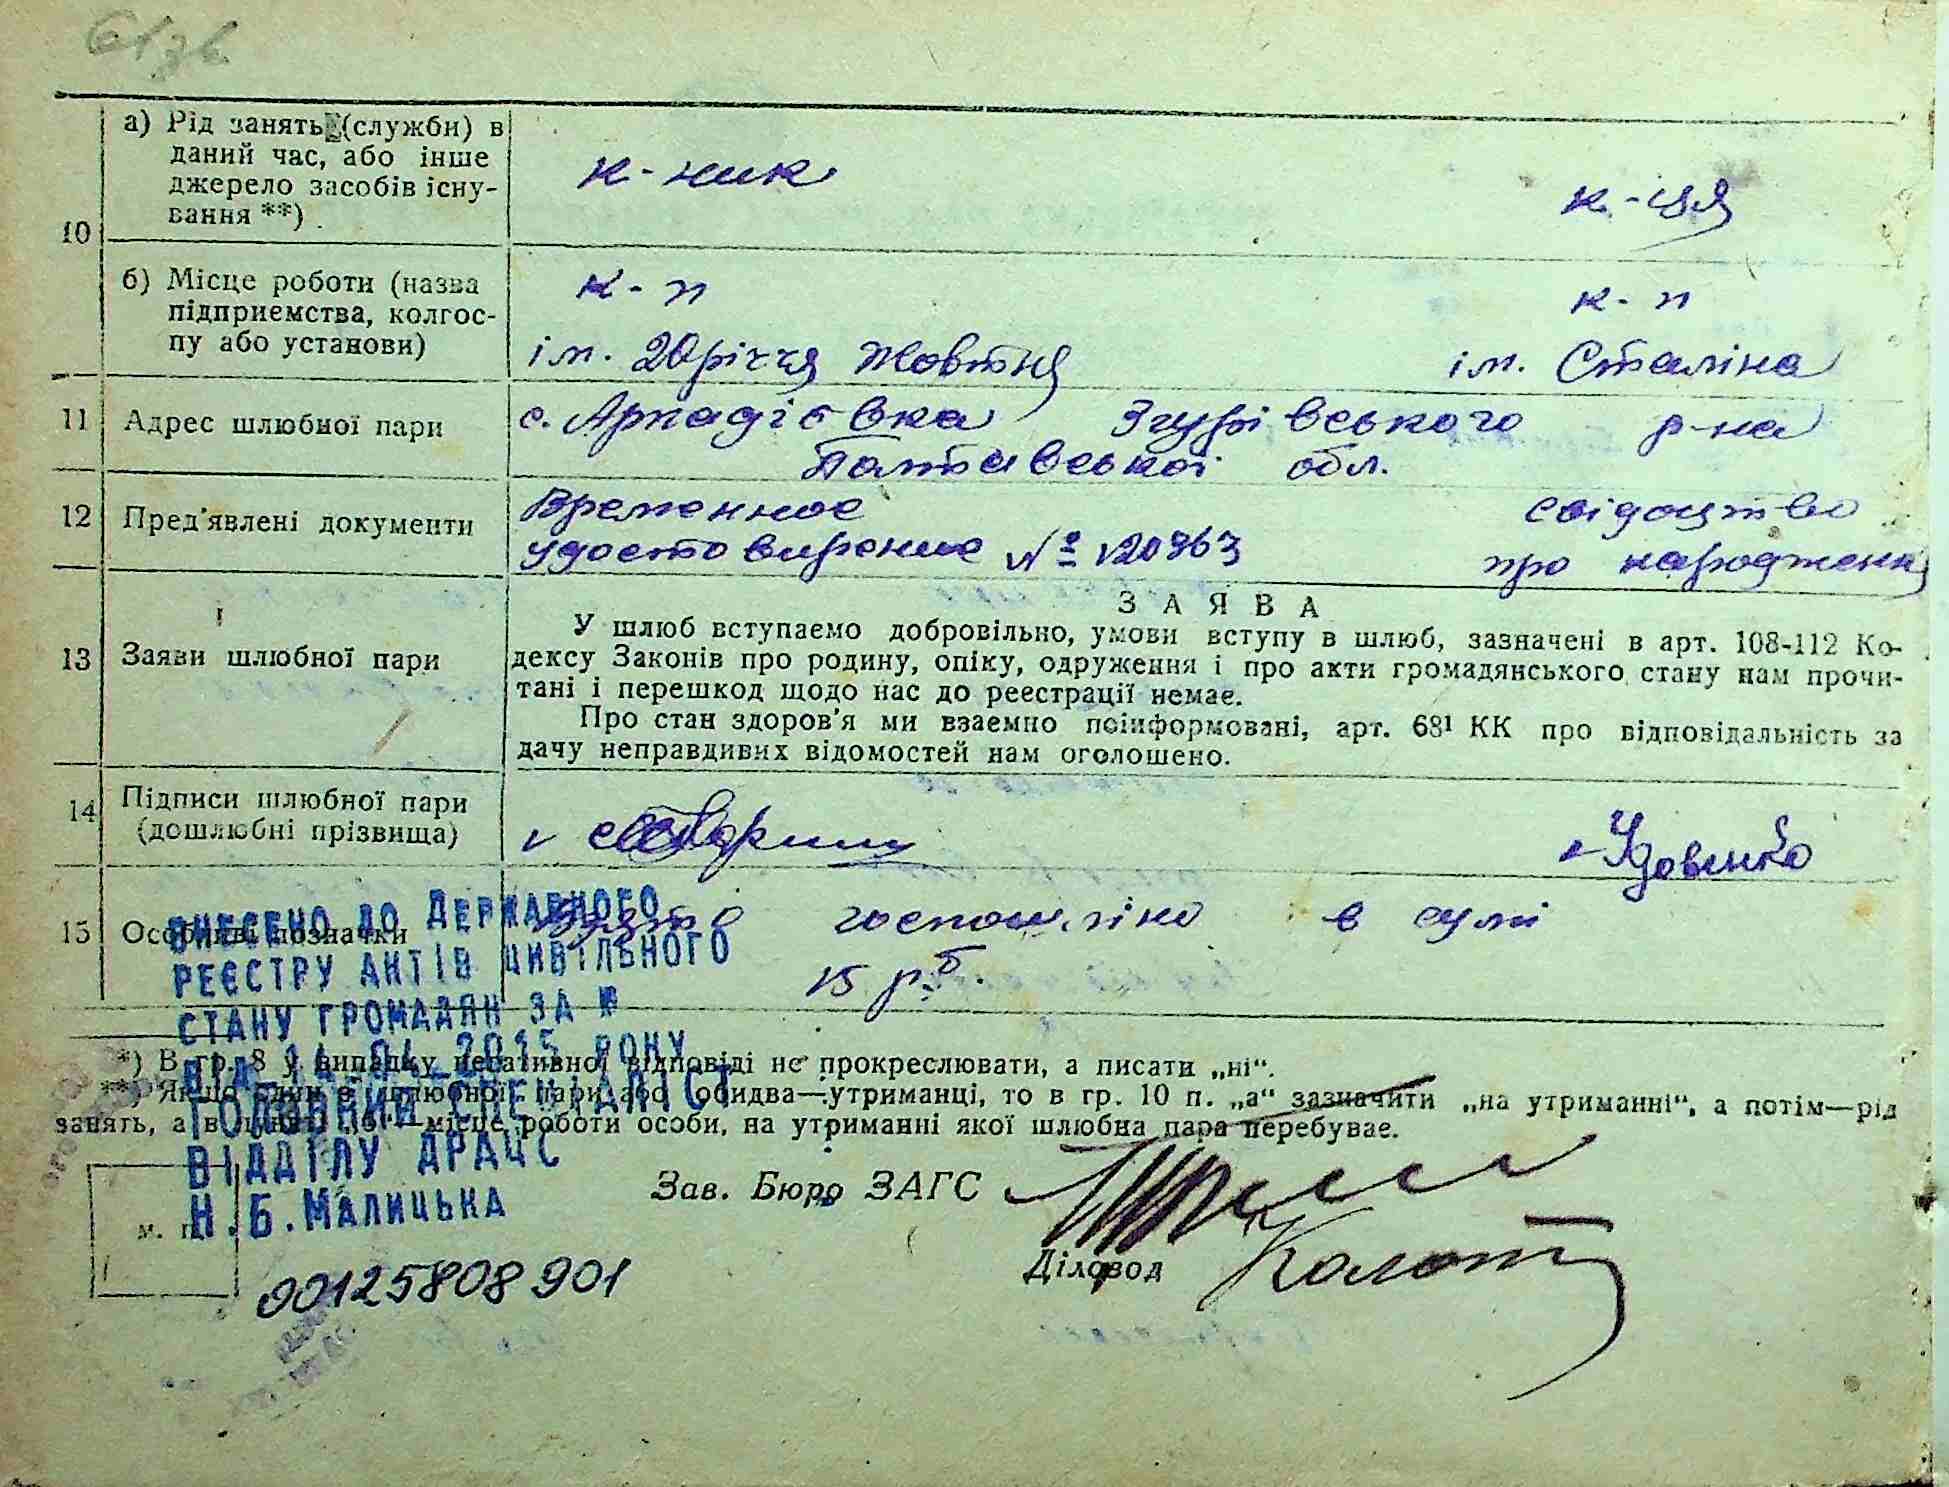 61 зв.
10
а) Рід занять (служби) в
даний час, або інше
джерело засобів існу-
вання **)
к-ник
к-ця
б) Місце роботи (назва
підприємства, колгос-
пу або установи)
к-п
ім. 20річчя Жовтня
к-п
ім. Сталіна
11 Адрес шлюбної пари
с. Аркадієвка Згурівського р-на
Полтавської обл.
12 Пред'явлені документи
Временное
удостовирение №
свідоцтво
про народження
13 Заяви шлюбної пари
ЗАЯВА
У шлюб вступаємо добровільно, умови вступу в шлюб, зазначені в арт. 108-112 Ко-
дексу Законів про родину, опіку, одруження і про акти громадянського стану нам прочи-
тані і перешкод щодо нас до реєстрації немає.
Про стан здоров'я ми взаємно поінформовані, арт. 68¹ КК про відповідальність за
дачу неправдивих відомостей нам оголошено.
14 Підписи шлюбної пари
(дошлюбні прізвища)
Удовенко
15 Особливі позначки
Взято госпошліно в сумі
15 рб.
ВНЕСЕНО ДО ДЕРЖАВНОГО
РЕЄСТРУ АКТІВ ЦИВІЛЬНОГО
СТАНУ ГРОМАДЯН ЗА №
ВІД 2015 РОКУ
ГОЛОВНИЙ СПЕЦІАЛІСТ
ВІДДІЛУ ДРАЦС
Н.Б.МАЛИЦЬКА
*) В гр. 8 у випадку негативної відповіді не прокреслювати, а писати „ні“.
**) Якщо один з шлюбної пари або обидва—утриманці, то в гр. 10 п. „а“ зазначити „на утриманні“, а потім—рід
занять, а в пункті „б“—місце роботи особи, на утриманні якої шлюбна пара перебуває.
Зав. Бюро ЗАГС
м. п.
Діловод
00125808901